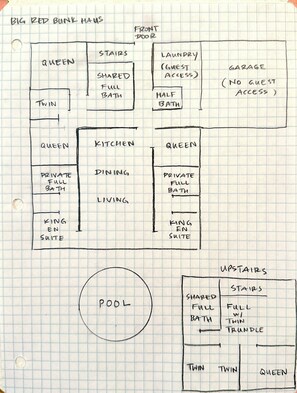 BIG RED BUNK HAUS
FRONT
DOOR
QUEEN
STAIRS
SHARED
FULL
BATH
LAUNDRY
(GUEST
ACCESS)
HALF
BATH
GARAGE
(NO GUEST
ACCESS)
TWIN
QUEEN
KITCHEN
QUEEN
PRIVATE
FULL
BATH
DINING
PRIVATE
FULL
BATH
LIVING
KING
EN
SUITE
KING
EN
SUITE
POOL
UPSTAIRS
SHARED
FULL
BATH
STAIRS
FULL
W/
TWIN
TRUNDLE
TWIN
TWIN
QUEEN